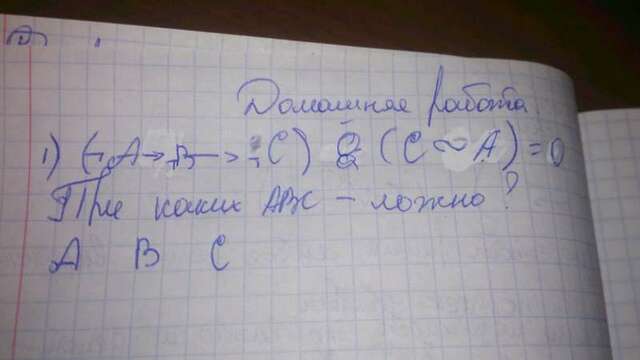 Домашняя работа
1) (¬A→B→¬C) & (C~A)=0
При каких ABC – ложно?
A B C